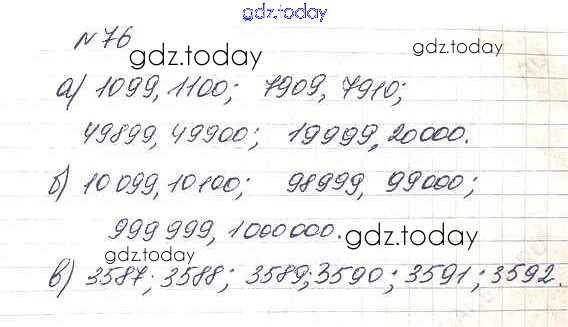 gdz.today
№76
gdz.today gdz.today
а) 1099, 1100; 7909, 7910;
49899, 49900; 19999, 20000.
б) 10099, 10100; 98999, 99000;
999 999, 1000000.
gdz.today
gdz.today
в) 3587; 3588; 3589; 3590; 3591; 3592.
gdz.today